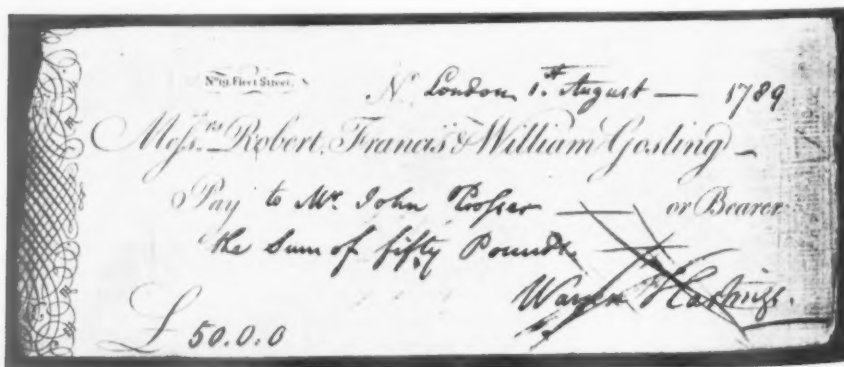 No 19, Fleet Street.
No London, 1st August — 1789
Messrs Robert, Francis & William Gosling —
Pay to Mr. John Prosser — or Bearer
the Sum of fifty Pounds,
Warren Hastings.
£ 50.0.0